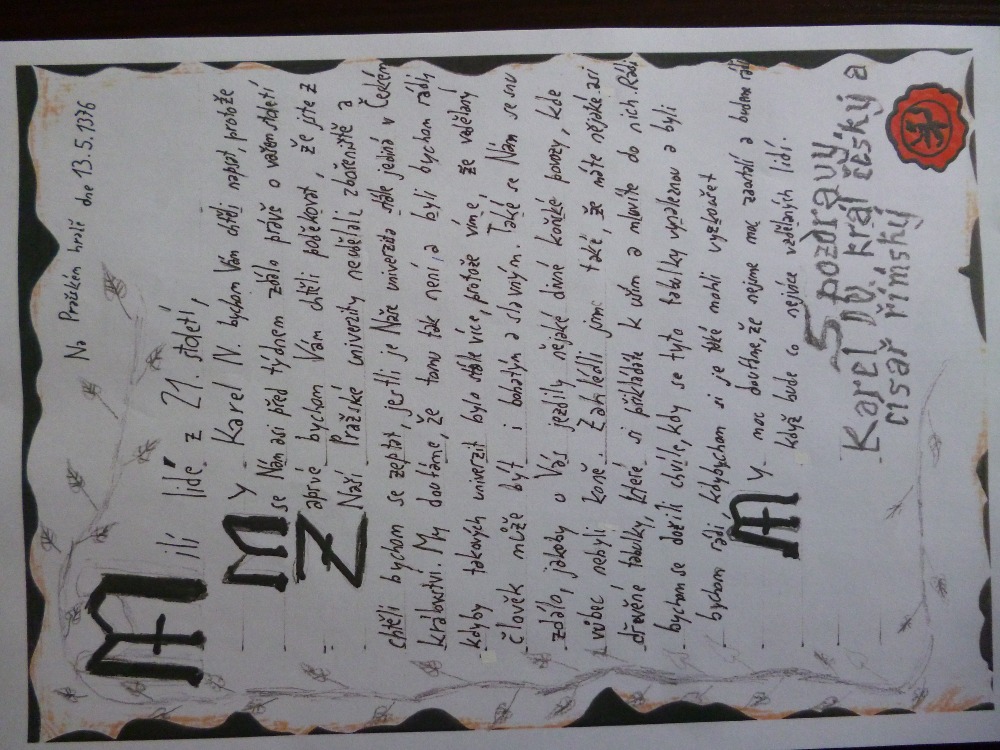 Na Pražském hradě dne 13.5.1376
Milí lidé z 21. století,
My Karel IV. bychom Vám chtěli napsat, protože
se Nám asi před týdnem zdálo právě o vašem století
Zaprvé bychom Vám chtěli poděkovat, že jste z
Naší Pražské univerzity neudělali zbořeniště a
chtěli bychom se zeptat jestli je Naše univerzita stále jediná v Českém
království. My doufáme, že tomu tak není, a byli bychom rádi,
kdyby takových univerzit bylo stále více, protože víme, že vzdělaný
člověk může být i bohatým a slavným. Také se Nám ve snu
zdálo, jakoby u Vás jezdily nějaké divné koňské povozy, kde
vůbec nebyli koně. Zahlédli jsme také, že máte nějaké asi
dřevěné tabulky, které si přikládáte k uším a mluvíte do nich. Rádi
bychom se dožili chvíle, kdy se tyto tabulky vynaleznou a byli
bychom rádi, kdybychom si je také mohli vyzkoušet
My moc doufáme, že nejsme moc zaostalí a budeme rádi
když bude co nejvíce vzdělaných lidí.
S pozdravy
Karel IV. král český a
císař římský